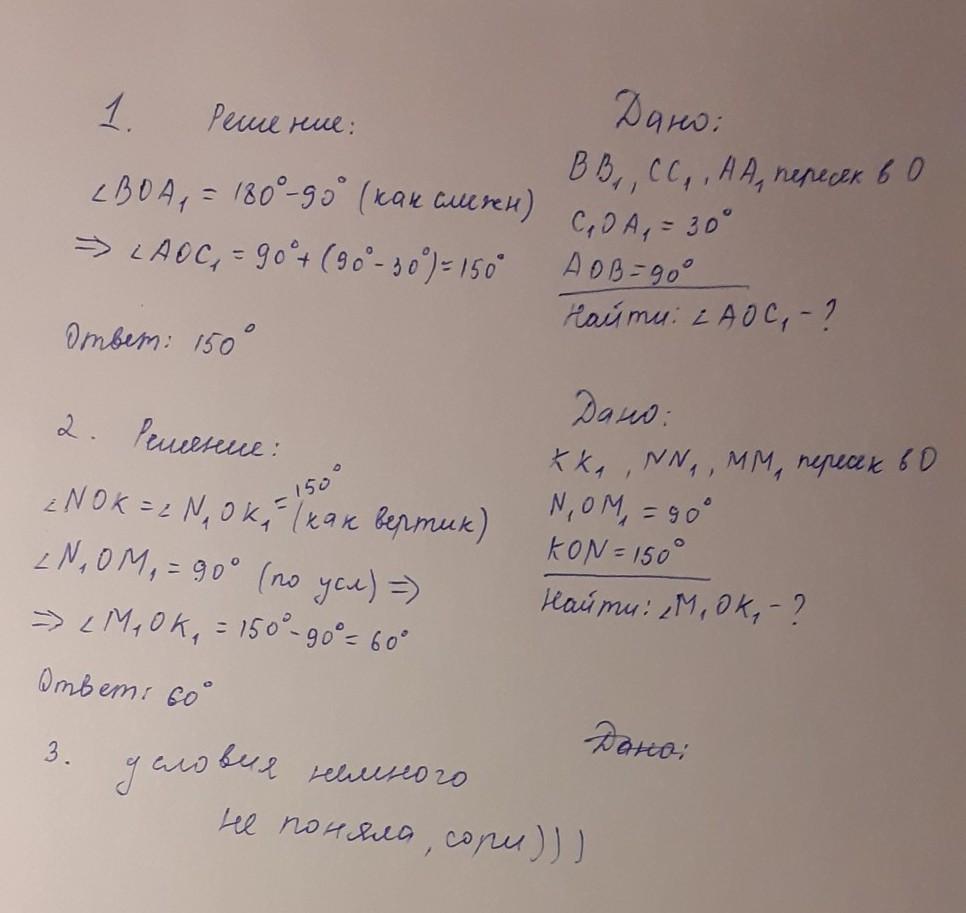 1. Решение:
∠BOA₁ = 180° - 90° (как смежн)
⇒ ∠AOC₁ = 90° + (90° - 30°) = 150°
Ответ: 150°
Дано:
BB₁, CC₁, AA₁ пересек в O
C₁OA₁ = 30°
AOB = 90°
Найти: ∠AOC₁ - ?
2. Решение:
∠NOK = ∠N₁OK₁ = 150° (как вертик)
∠N₁OM₁ = 90° (по усл) ⇒
⇒ ∠M₁OK₁ = 150° - 90° = 60°
Ответ: 60°
Дано:
KK₁, NN₁, MM₁ пересек в O
N₁OM₁ = 90°
KON = 150°
Найти: ∠M₁OK₁ - ?
3. условия немного
не поняла, сори)))
Дано: